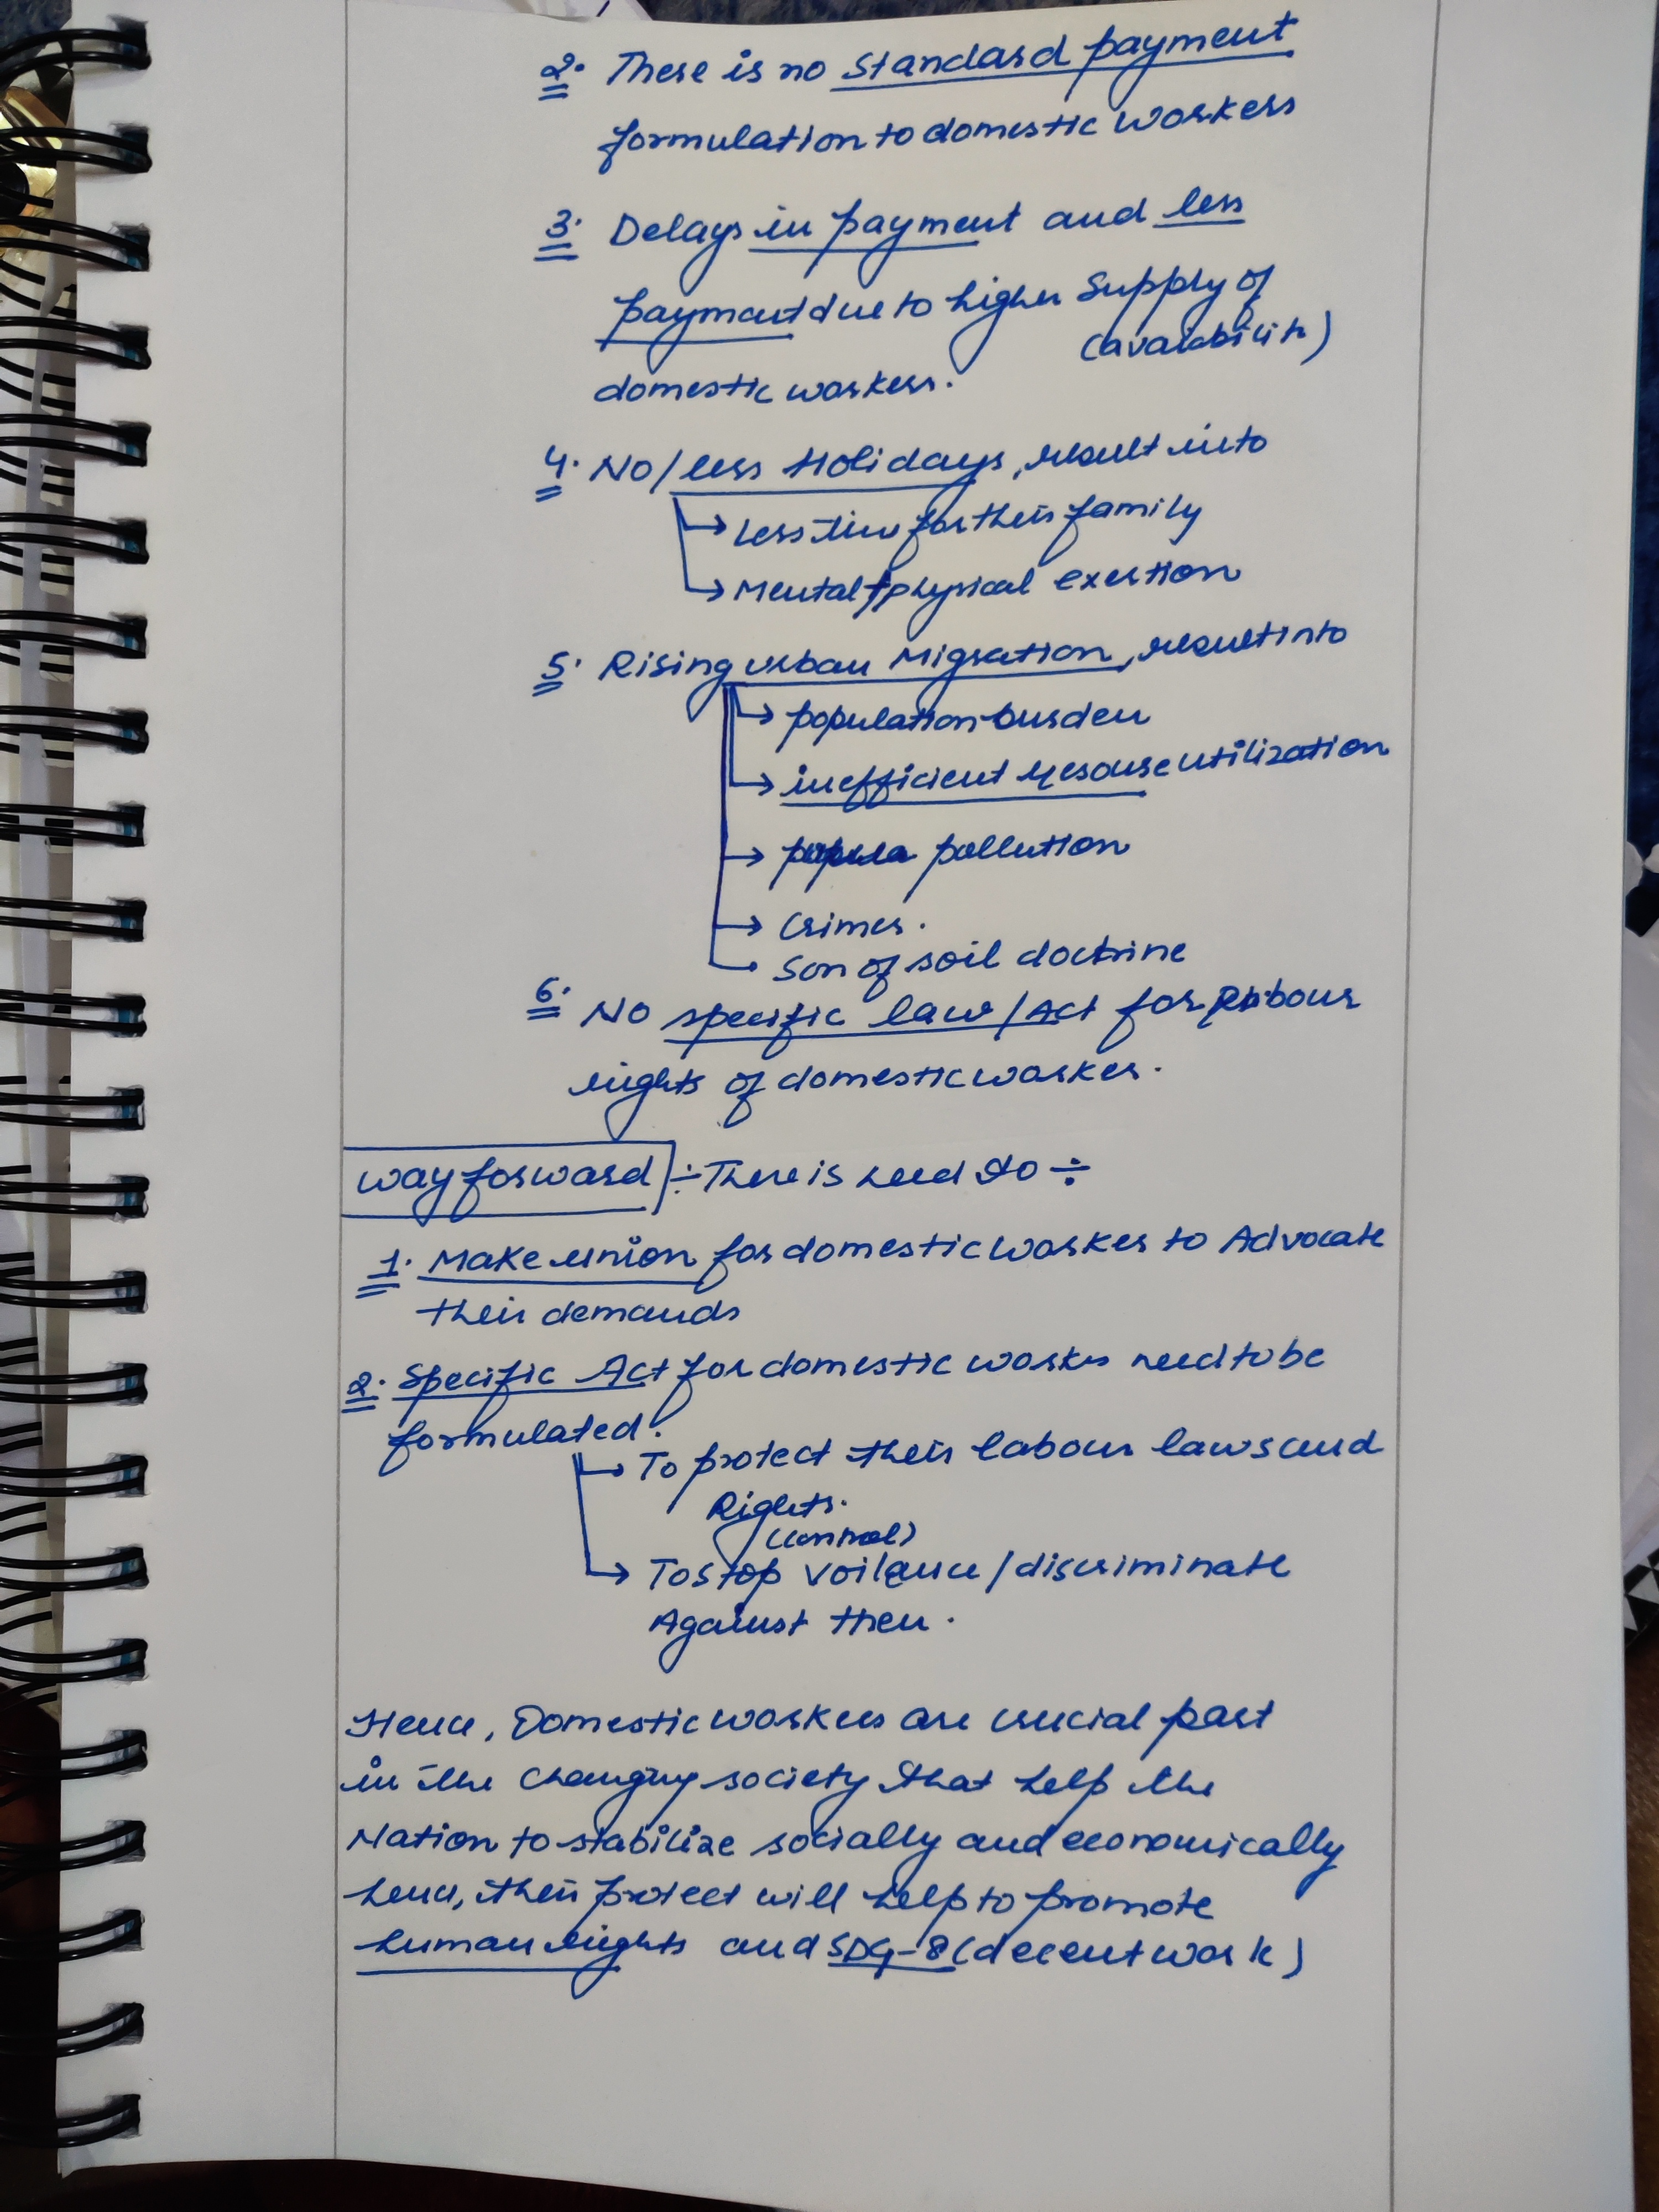 2. There is no standard payment
formulation to domestic workers
3. Delays in payment and less
payment due to higher supply of
(avalability)
domestic workers.
4. No/less Holidays, result into
→ Less time for their family
→ Mental/physical exertion
5. Rising urban Migration, result into
→ population burden
→ inefficient resouse utilization
→ pollution
→ Crimes.
Son of soil doctrine
6. No specific law/Act for labour
rights of domestic worker.
way forward ÷ There is need to ÷
1. Make union for domestic worker to Advocate
their demands
2. Specific Act for domestic worker need to be
formulated.
→ To protect their labour laws and
Rights.
(control)
→ To stop voilance/discriminate
Against them.
Hence, Domestic workers are crucial part
in the changing society that help the
Nation to stabilize socially and economically
hence, their protect will help to promote
human rights and SDG-8 (decent work)